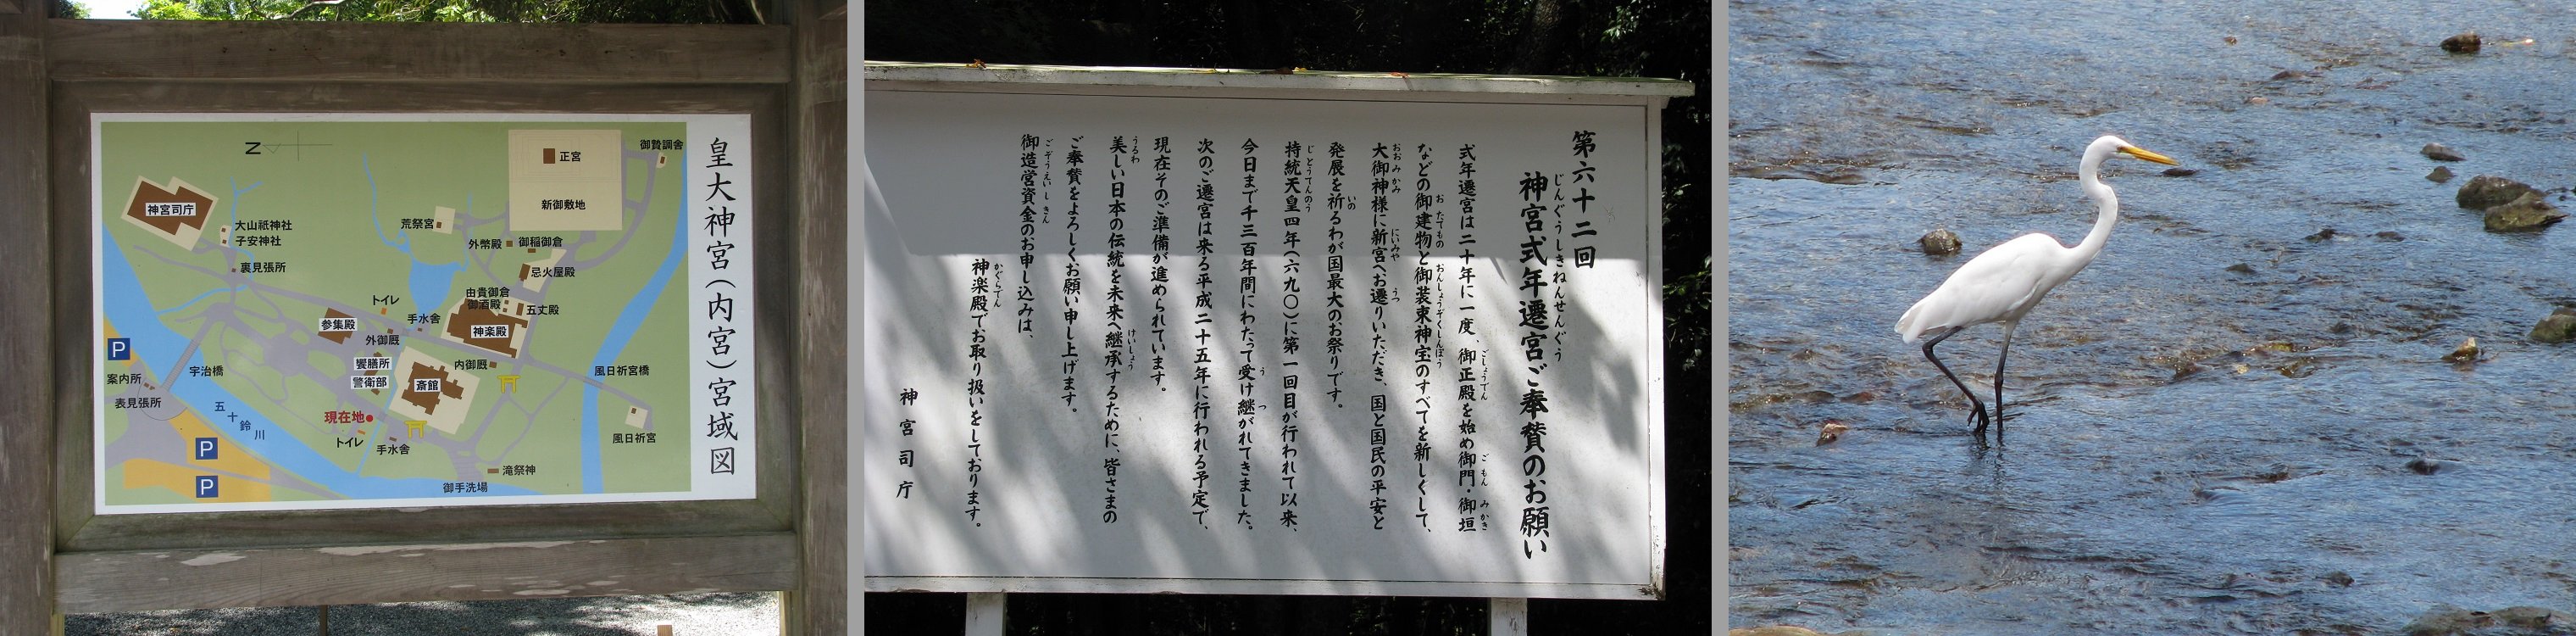 皇大神宮（内宮）宮域図
N
正宮
新御敷地
御贄調舎
神宮司庁
大山祇神社
子安神社
裏見張所
荒祭宮
外幣殿
御稲御倉
忌火屋殿
由貴御倉
御酒殿
五丈殿
トイレ
手水舎
神楽殿
参集殿
外御厩
饗膳所
警衛部
内御厩
斎館
P
案内所
表見張所
宇治橋
五十鈴川
現在地
トイレ
手水舎
風日祈宮橋
風日祈宮
滝祭神
御手洗場
P
P
第六十二回
神宮式年遷宮ご奉賛のお願い
じんぐうしきねんせんぐう
式年遷宮は二十年に一度、御正殿を始め御門・御垣
ごしょうでん
ごもん
みかき
などの御建物と御装束神宝のすべてを新しくして、
おたてもの
おんしょうぞくしんぽう
大御神様に新宮へお遷りいただき、国と国民の平安と
おおみかみ
にいみや
うつ
発展を祈るわが国最大のお祭りです。
いの
持統天皇四年（六九〇）に第一回目が行われて以来、
じとうてんのう
今日まで千三百年間にわたって受け継がれてきました。
う
つ
次のご遷宮は来る平成二十五年に行われる予定で、
現在そのご準備が進められています。
美しい日本の伝統を未来へ継承するために、皆さまの
うるわ
けいしょう
ご奉賛をよろしくお願い申し上げます。
御造営資金のお申し込みは、
ごぞうえいしきん
神楽殿でお取り扱いをしております。
かぐらでん
神宮司庁